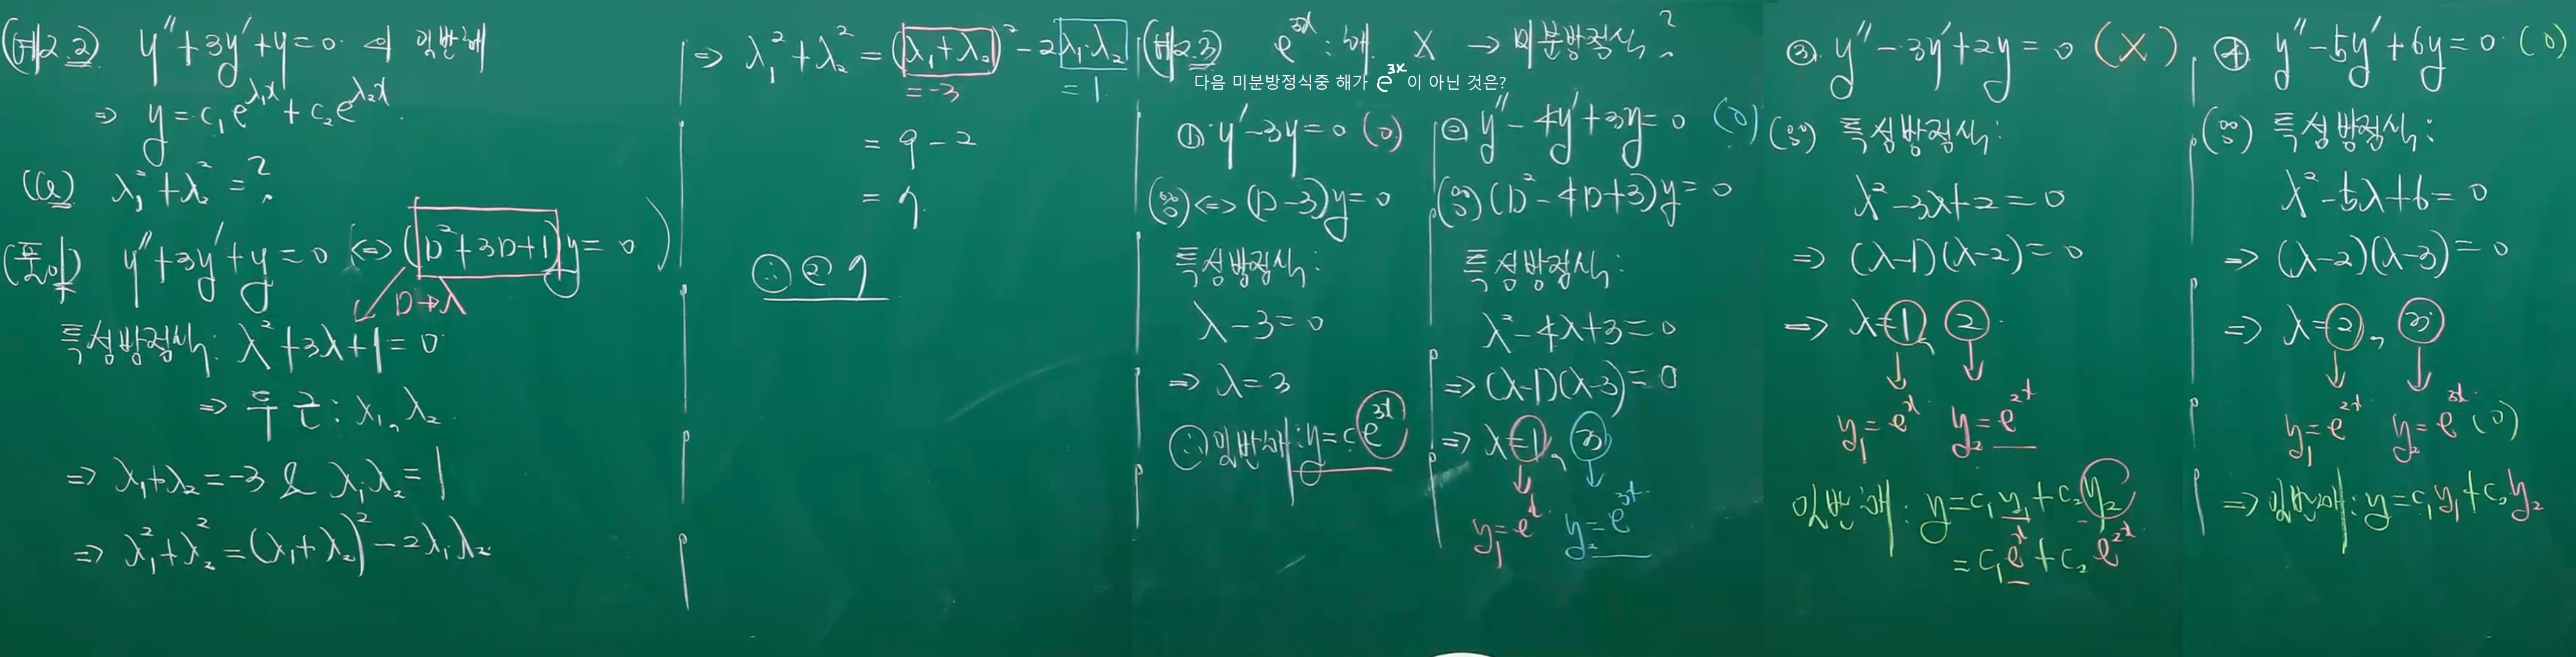 (예2.2) y''+3y'+y=0 의 일반해
⇒ y=c₁e^{λ₁x}+c₂e^{λ₂x}.
(Q) λ₁²+λ₂²=?
(풀이) y''+3y'+y=0 (⇔ (D²+3D+1)y=0)
D→λ
특성방정식: λ²+3λ+1=0
⇒ 두 근: λ₁, λ₂.
⇒ λ₁+λ₂=-3 & λ₁λ₂=1
⇒ λ₁²+λ₂²=(λ₁+λ₂)²-2λ₁λ₂
⇒ λ₁²+λ₂²=(λ₁+λ₂)²-2λ₁·λ₂
=-3 =1
= 9-2
= 7.
∴ ② 7
(예2.3) e^{3x}: 해 X → 미분방정식?
다음 미분방정식중 해가 e^{3x}이 아닌 것은?
①. y'-3y=0 (o)
(∵) ⇔ (D-3)y=0
특성방정식:
λ-3=0
⇒ λ=3
∴ 일반해: y=ce^{3x}
② y''-4y'+3y=0 (o)
(∵) (D²-4D+3)y=0
특성방정식:
λ²-4λ+3=0
⇒ (λ-1)(λ-3)=0
⇒ λ=1, 3
y₁=e^x y₂=e^{3x}
③. y''-3y'+2y=0 (X)
(∵) 특성방정식:
λ²-3λ+2=0
⇒ (λ-1)(λ-2)=0
⇒ λ=1, 2
y₁=e^x y₂=e^{2x}
일반해: y=c₁y₁+c₂y₂
=c₁e^x+c₂e^{2x}
④. y''-5y'+6y=0 (o)
(∵) 특성방정식:
λ²-5λ+6=0
⇒ (λ-2)(λ-3)=0
⇒ λ=2, 3
y₁=e^{2x} y₂=e^{3x} (o)
⇒ 일반해: y=c₁y₁+c₂y₂